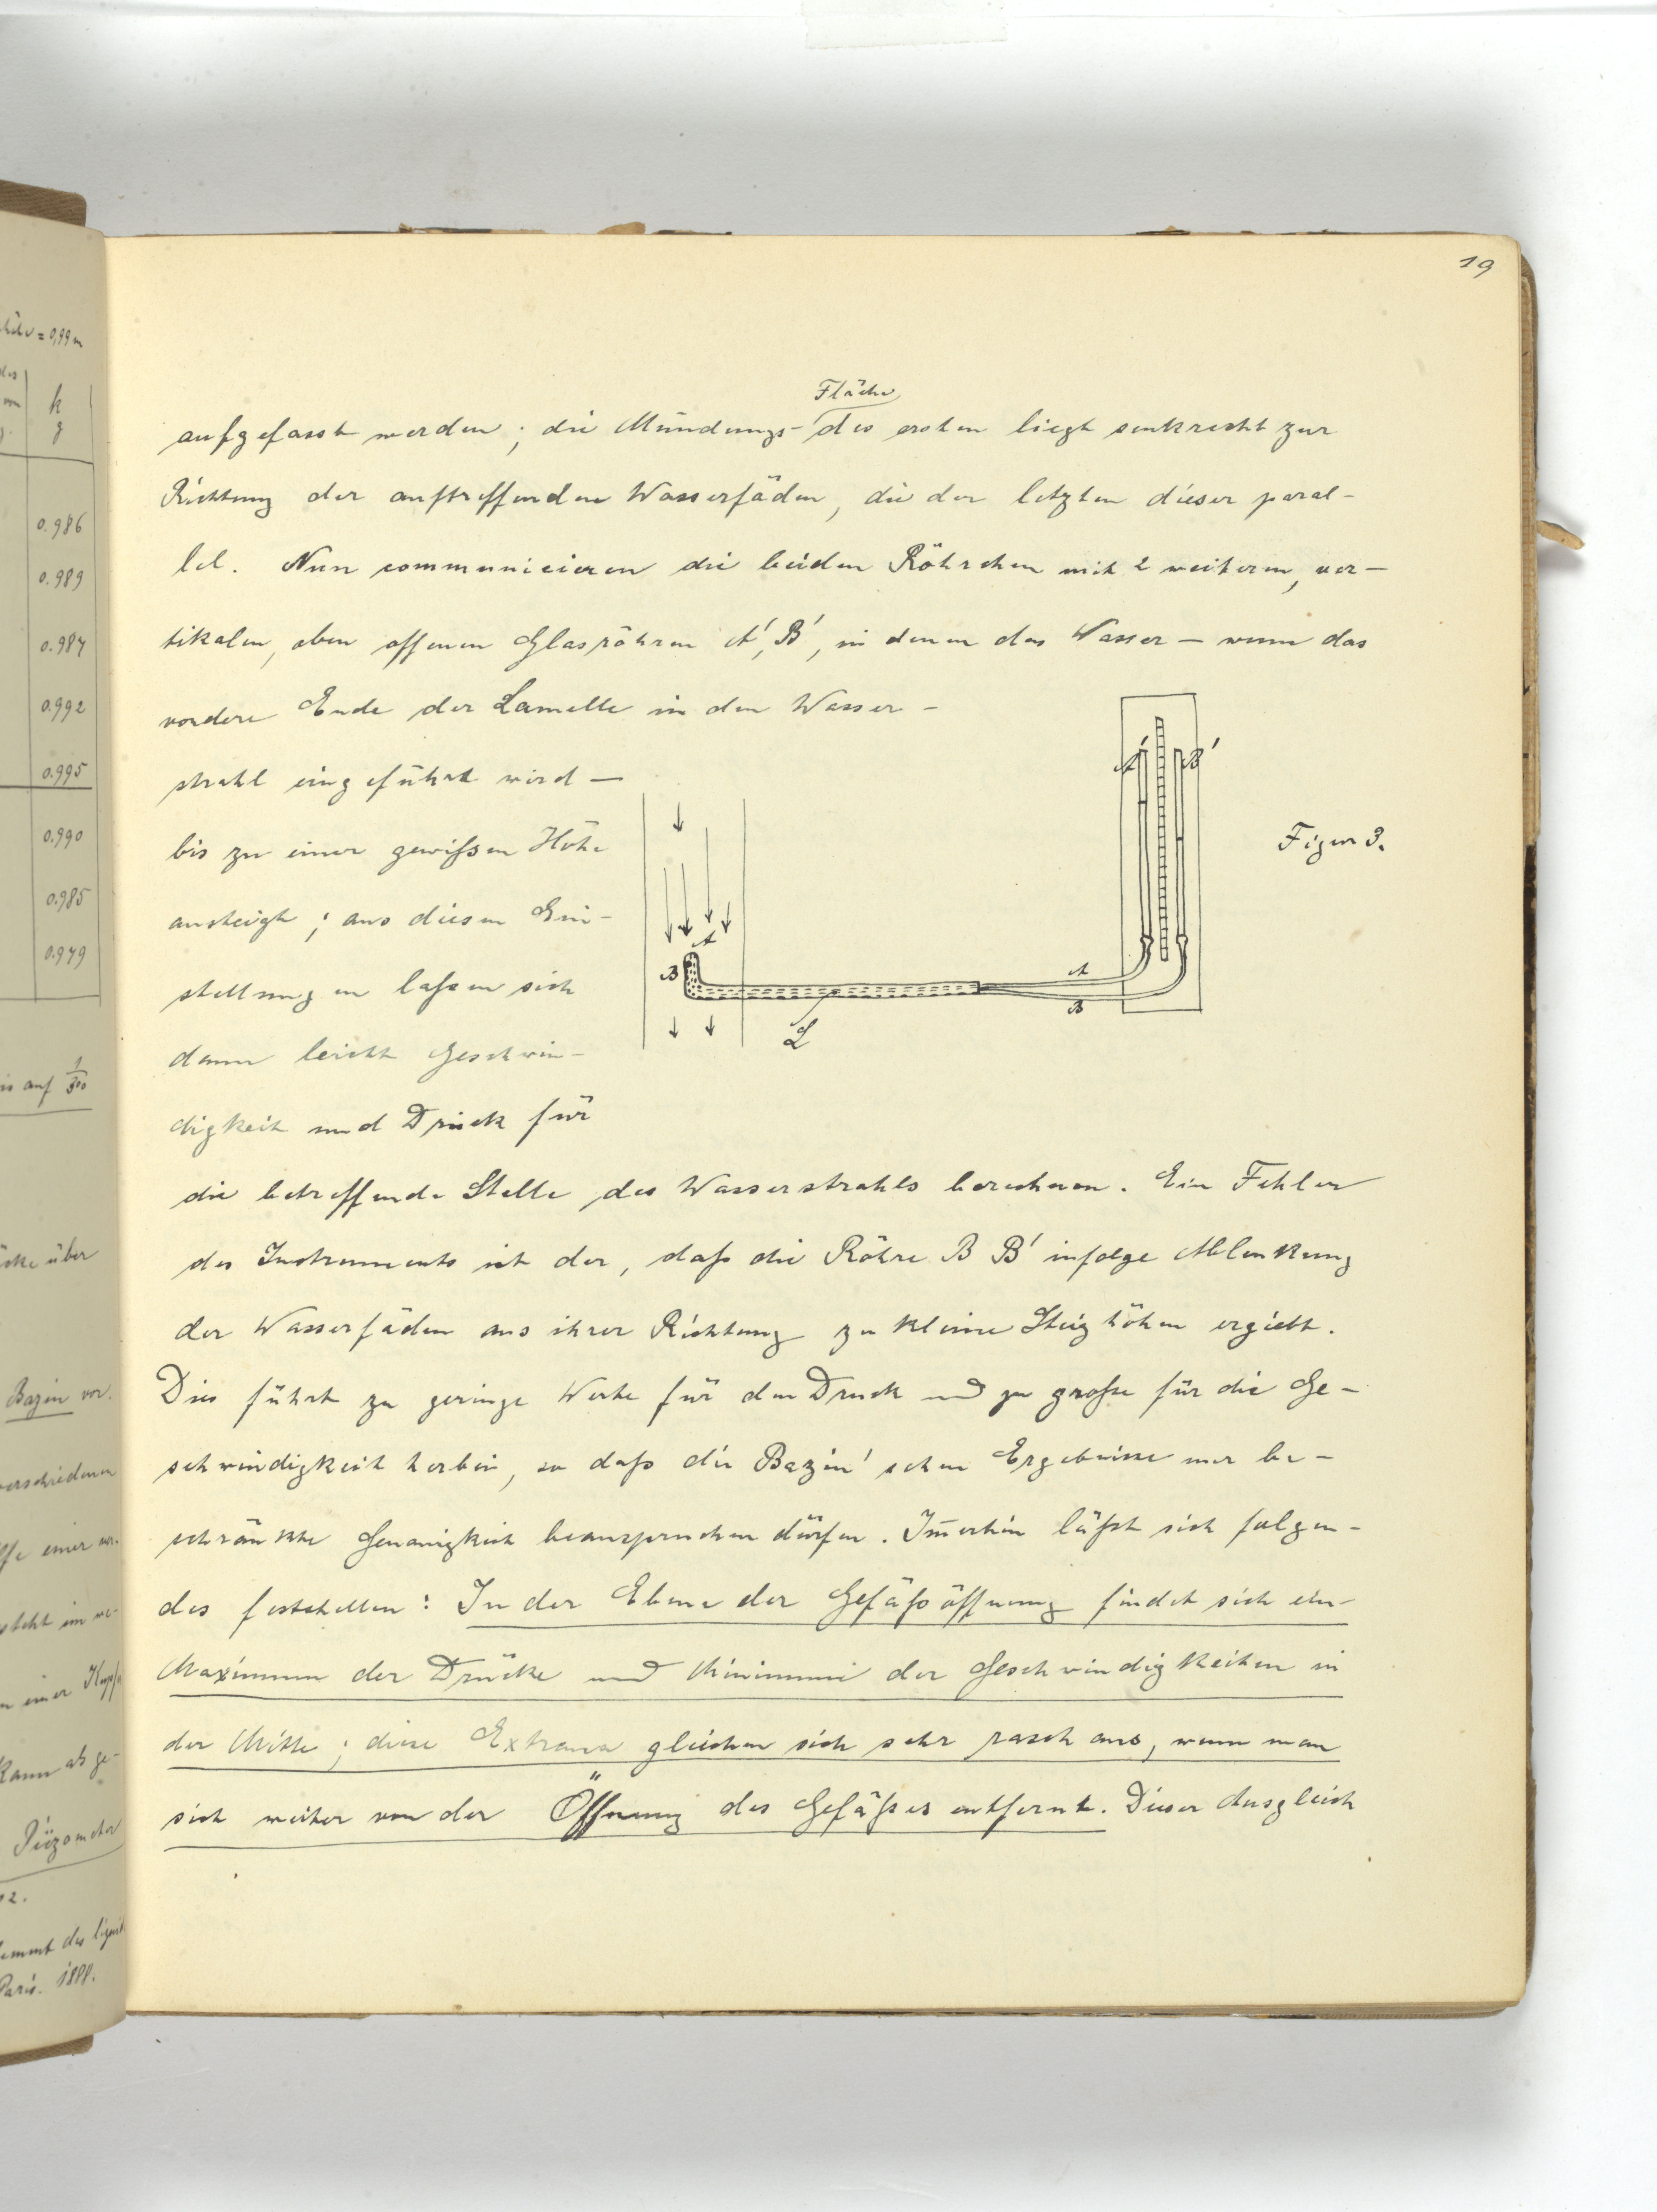 höhe = 0,99 m
des
k
g
0.986
0.989
0.987
0.992
0.995
0.990
0.985
0.979
bis auf 1/300
über
Bazin vor.
verschiedenen
einer
steht im we-
einer
kann ab ge-
Piëzometer
12.
Paris. 1888.
19
Fläche
aufgefasst werden; die Mündungs- des ersten liegt senkrecht zur
Richtung der auftreffenden Wasserfäden, die der letzten dieser paral-
lel. Nun communicieren die beiden Röhrchen mit 2 weiteren, ver-
tikalen, oben offenen Glasröhren A', B', in denen das Wasser – wenn das
vordere Ende der Lamelle in den Wasser-
strahl eingeführt wird –
bis zu einer gewißen Höhe
ansteigt; aus diesen Ein-
stellungen laßen sich
dann leicht Geschwin-
digkeit und Druck für
A' B'
Figur 3.
A
B
A
B
L
die betreffende Stelle des Wasserstrahls berechnen. Ein Fehler
des Instruments ist der, daß die Röhre B B' infolge Ablenkung
der Wasserfäden aus ihrer Richtung zu kleine Steighöhen ergiebt.
Dies führt zu geringe Werte für den Druck und zu große für die Ge-
schwindigkeit herbei, so daß die Bazin'schen Ergebnisse nur be-
schränkte Genauigkeit beanspruchen dürfen. Im̄erhin läßt sich folgen-
des feststellen: In der Ebene der Gefäßöffnung findet sich ein
Maximum der Drücke und Minimum der Geschwindigkeiten in
der Mitte; diese Extrema gleichen sich sehr rasch aus, wenn man
sich weiter von der Öffnung des Gefäßes entfernt. Dieser Ausgleich